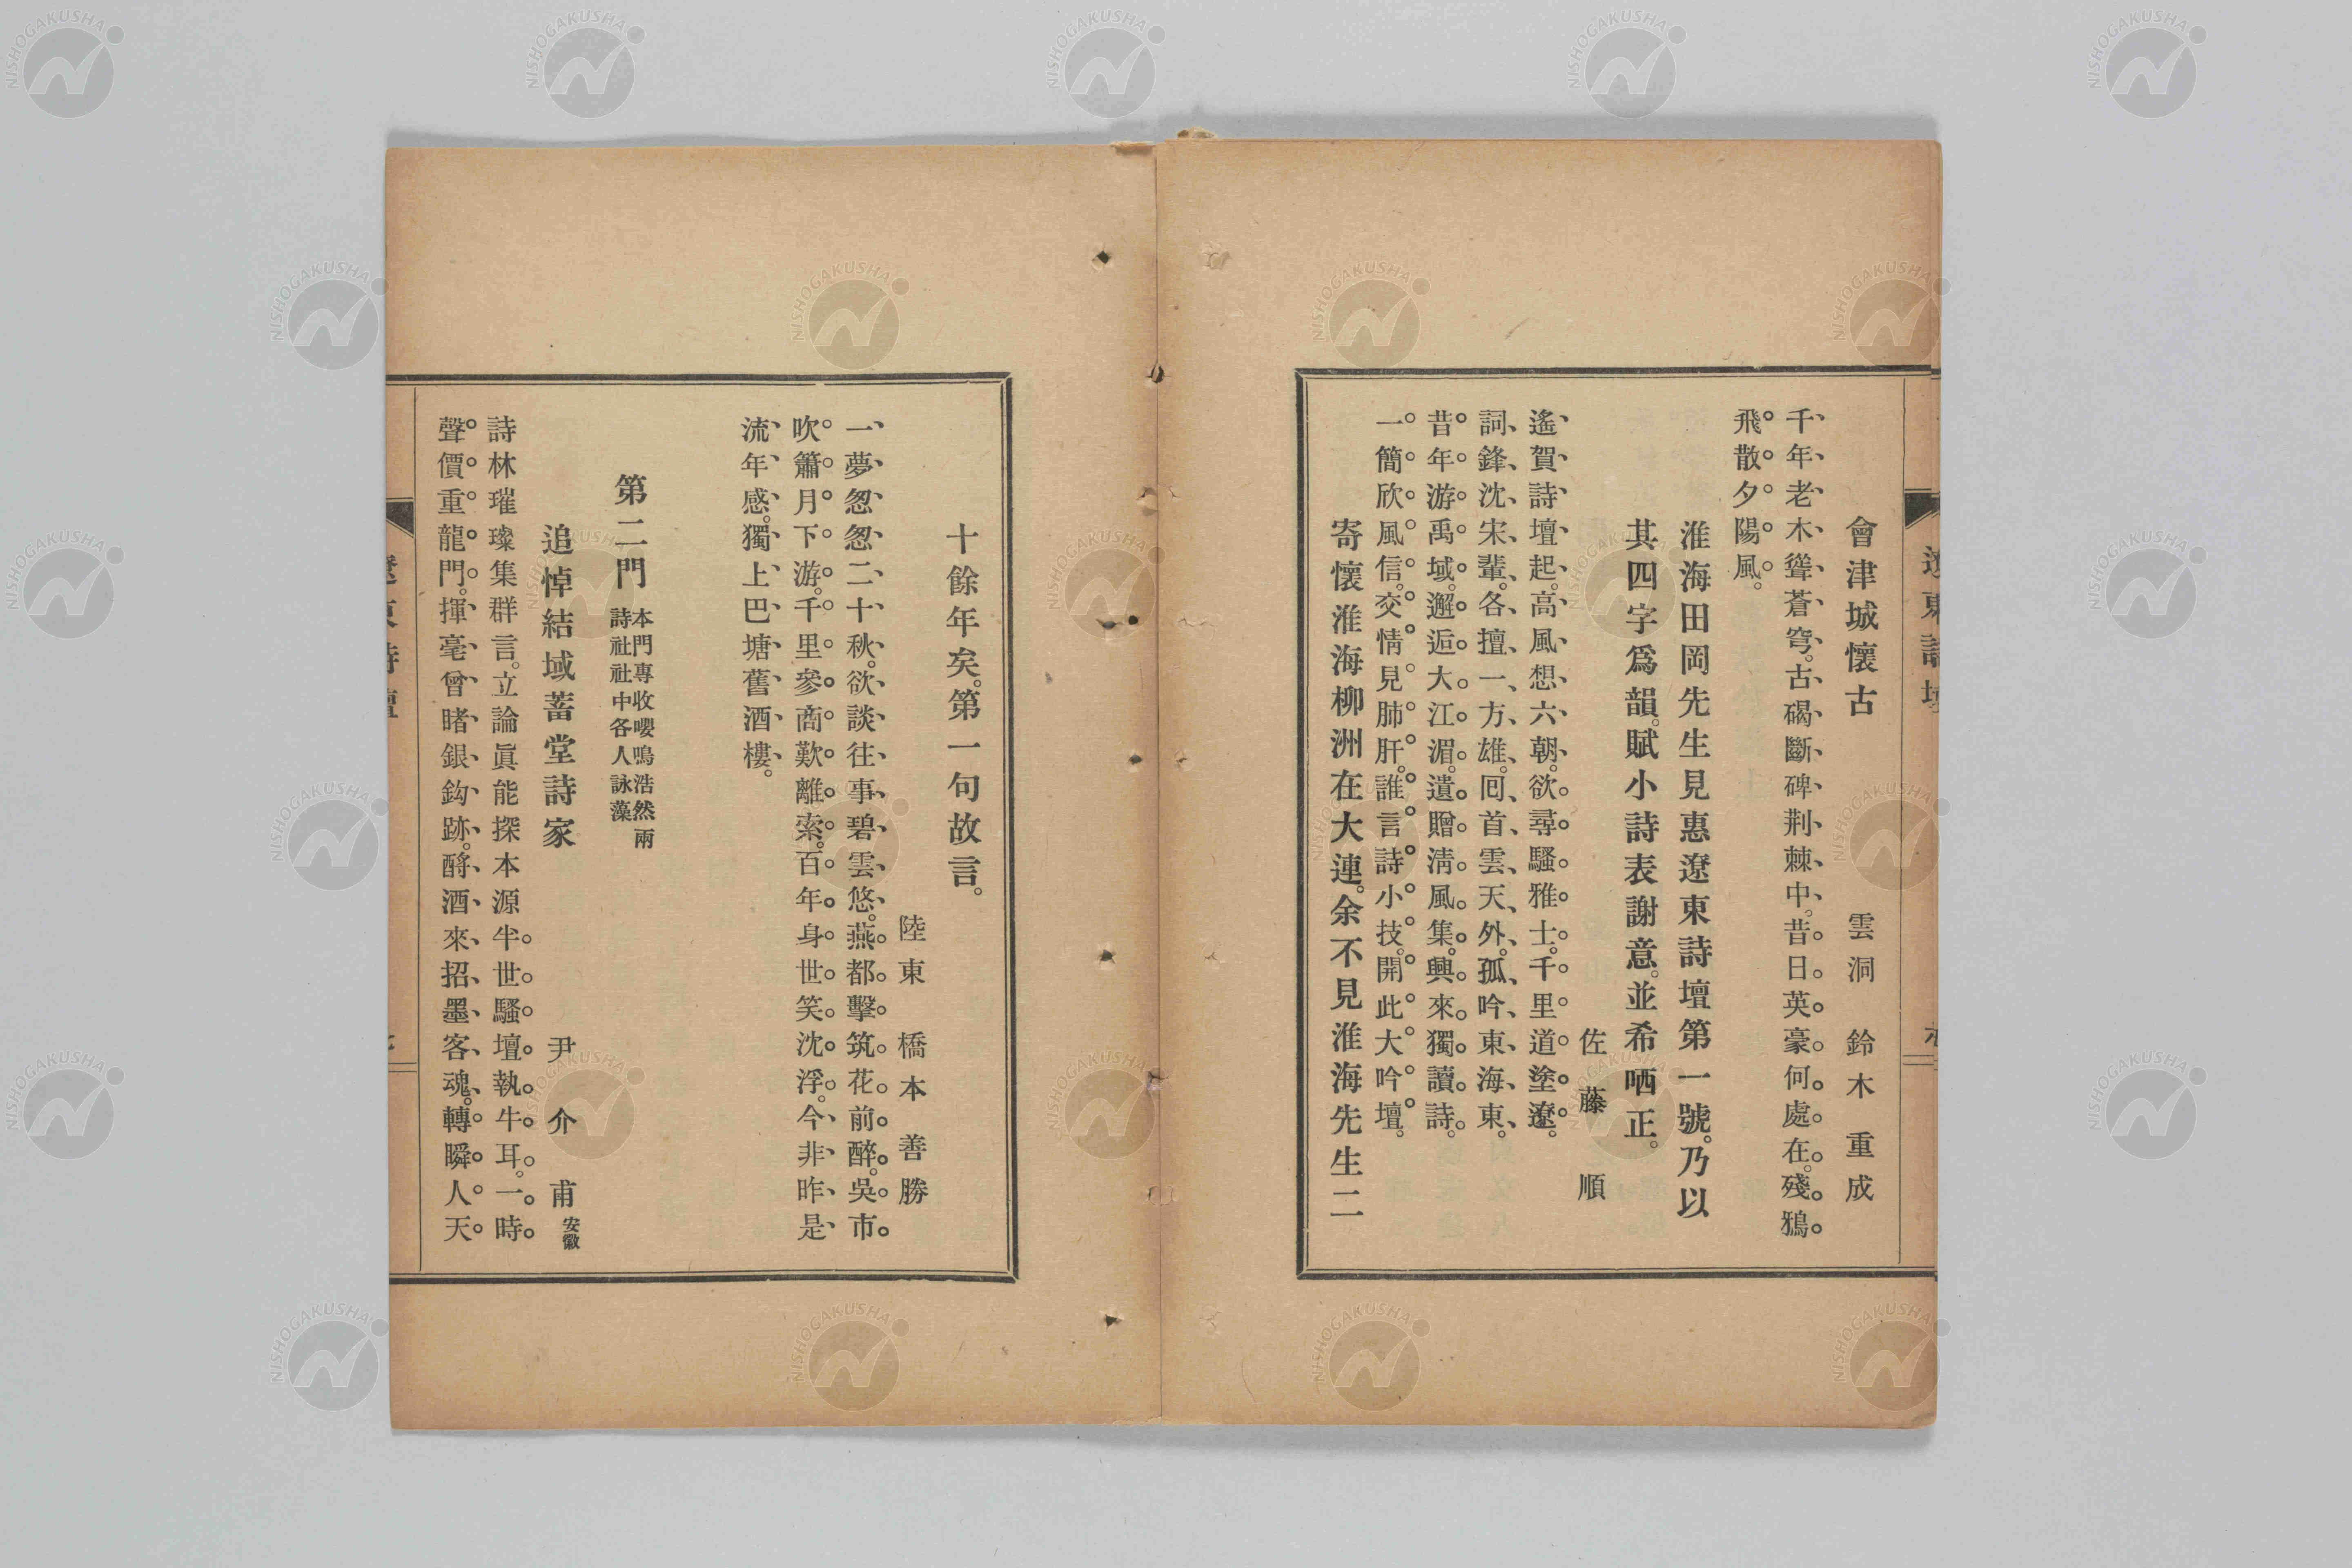 會津城懷古　雲洞　鈴木重成
千年老木聳蒼穹。古碣斷碑荆棘中。昔日英豪何處在。殘鴉
飛散夕陽風。
淮海田岡先生見惠遼東詩壇第一號。乃以
其四字爲韻。賦小詩表謝意。並希哂正。
佐藤順
遙賀詩壇起。高風想六朝。欲尋騷雅士。千里道塗遼。
詞鋒沈宋輩。各擅一方雄。囘首雲天外。孤吟東海東。
昔年游禹域。邂逅大江湄。遺贈淸風集。興來獨讀詩。
一簡欣風信。交情見肺肝。誰言詩小技。開此大吟壇。
寄懷淮海柳洲在大連。余不見淮海先生二
十餘年矣。第一句故言。
陸東　橋本善勝
一夢怱怱二十秋。欲談往事碧雲悠。燕都擊筑花前醉。吳市
吹簫月下游。千里參商歎離索。百年身世笑沈浮。今非昨是
流年感。獨上巴塘舊酒樓。
第二門　本門專收嚶鳴浩然兩
詩社社中各人詠藻
追悼結城蓄堂詩家　尹介甫　安徽
詩林璀璨集群言。立論眞能探本源。半世騷壇執牛耳。一時
聲價重龍門。揮毫曾睹銀鈎跡。酹酒來招墨客魂。轉瞬人天
NISHOGAKUSHA